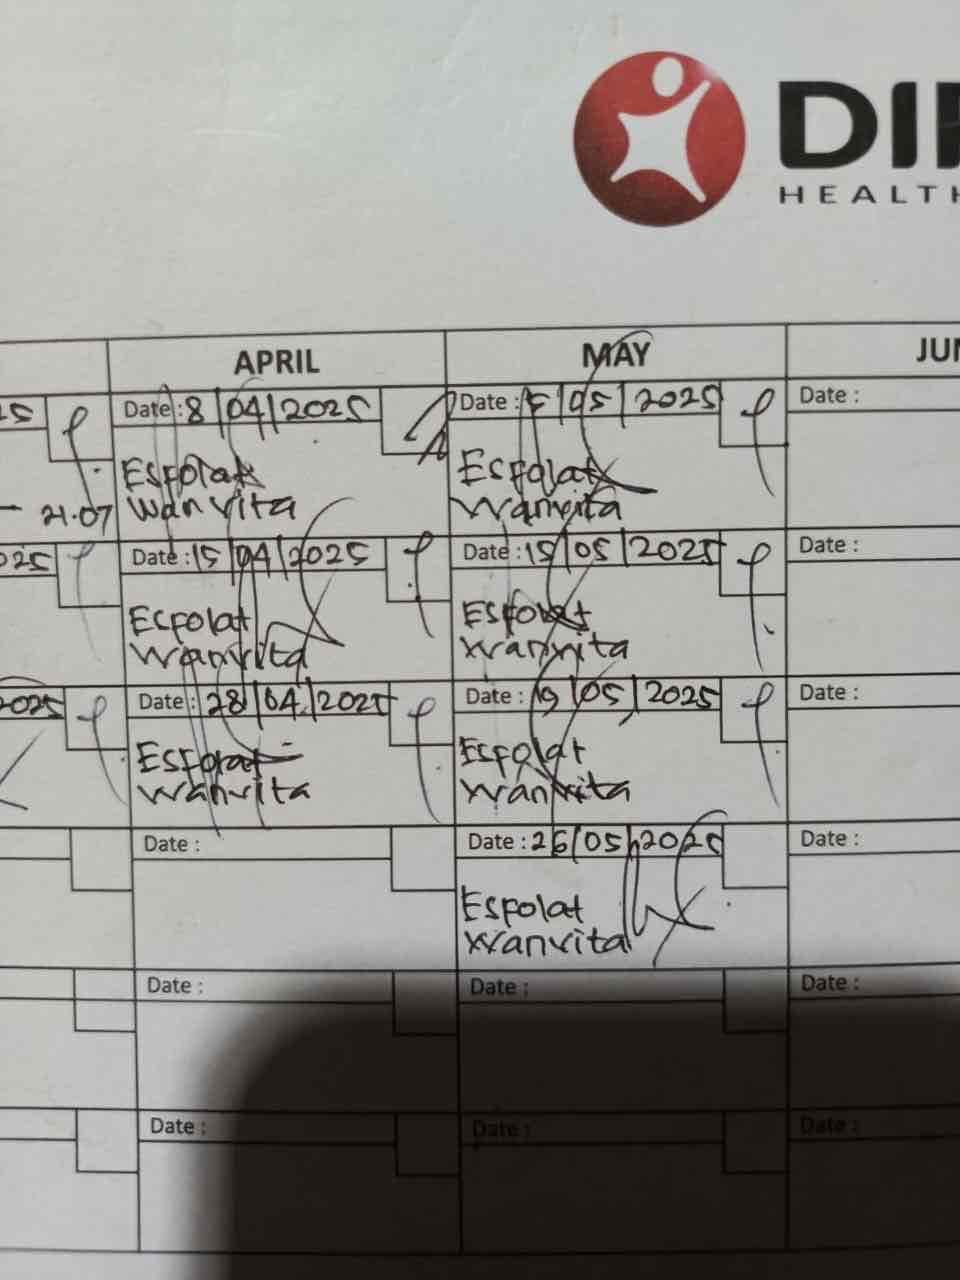 HEALTH
APRIL
MAY
Date : 8/04/2025
Esfolat
Wanvita
Date : 5/05/2025
Esfolat
Wanvita
Date :
21.07
Date : 15/04/2025
Esfolat
Wanvita
Date : 15/05/2025
Esfolat
Wanvita
Date :
2025
Date : 28/04/2025
Esfolat
Wanvita
Date : 19/05/2025
Esfolat
Wanvita
Date :
Date :
Date : 26/05/2025
Esfolat
Wanvita
Date :
Date :
Date :
Date :
Date :
Date :
Date :